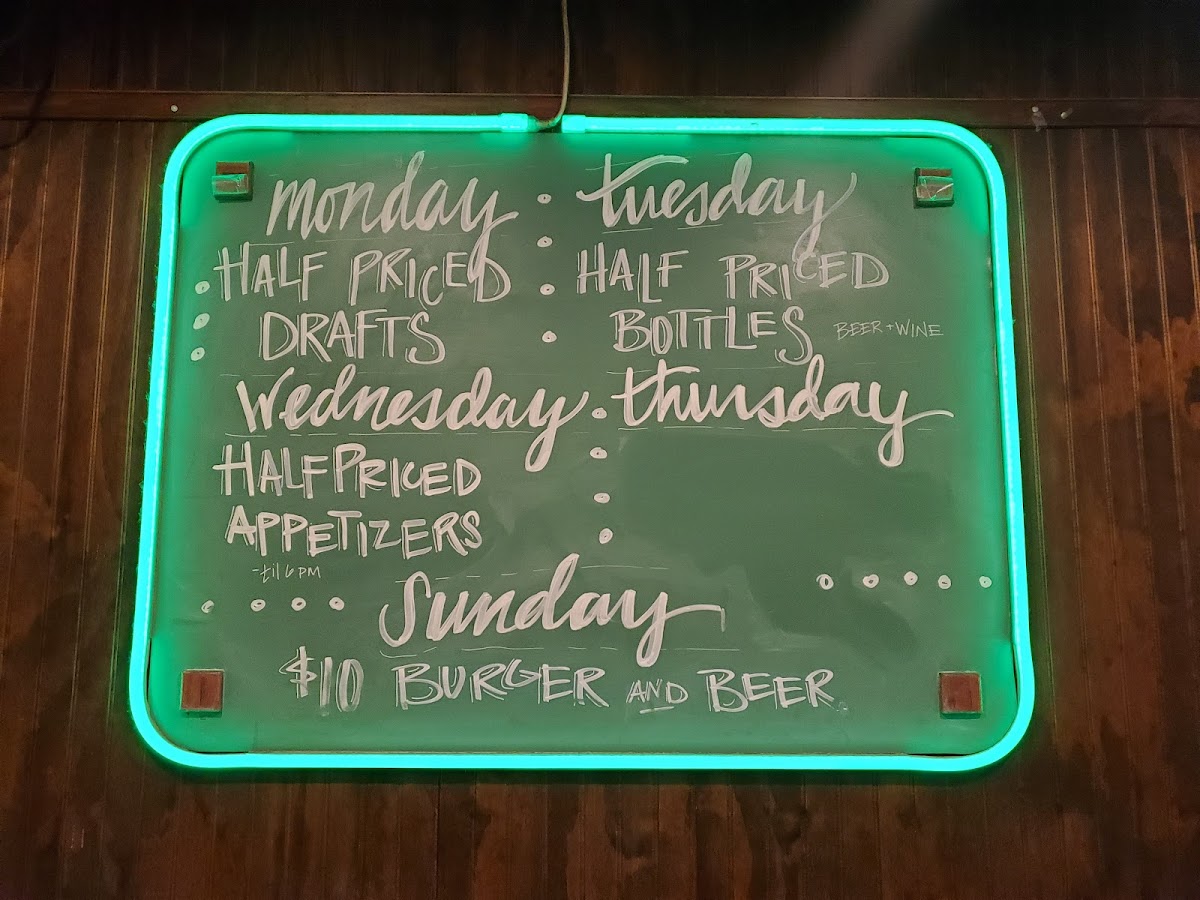 monday
HALF PRICED
DRAFTS
tuesday
HALF PRICED
BOTTLES BEER + WINE
Wednesday
HALF PRICED
APPETIZERS
-til 6 PM
thursday
Sunday
$10 BURGER AND BEER